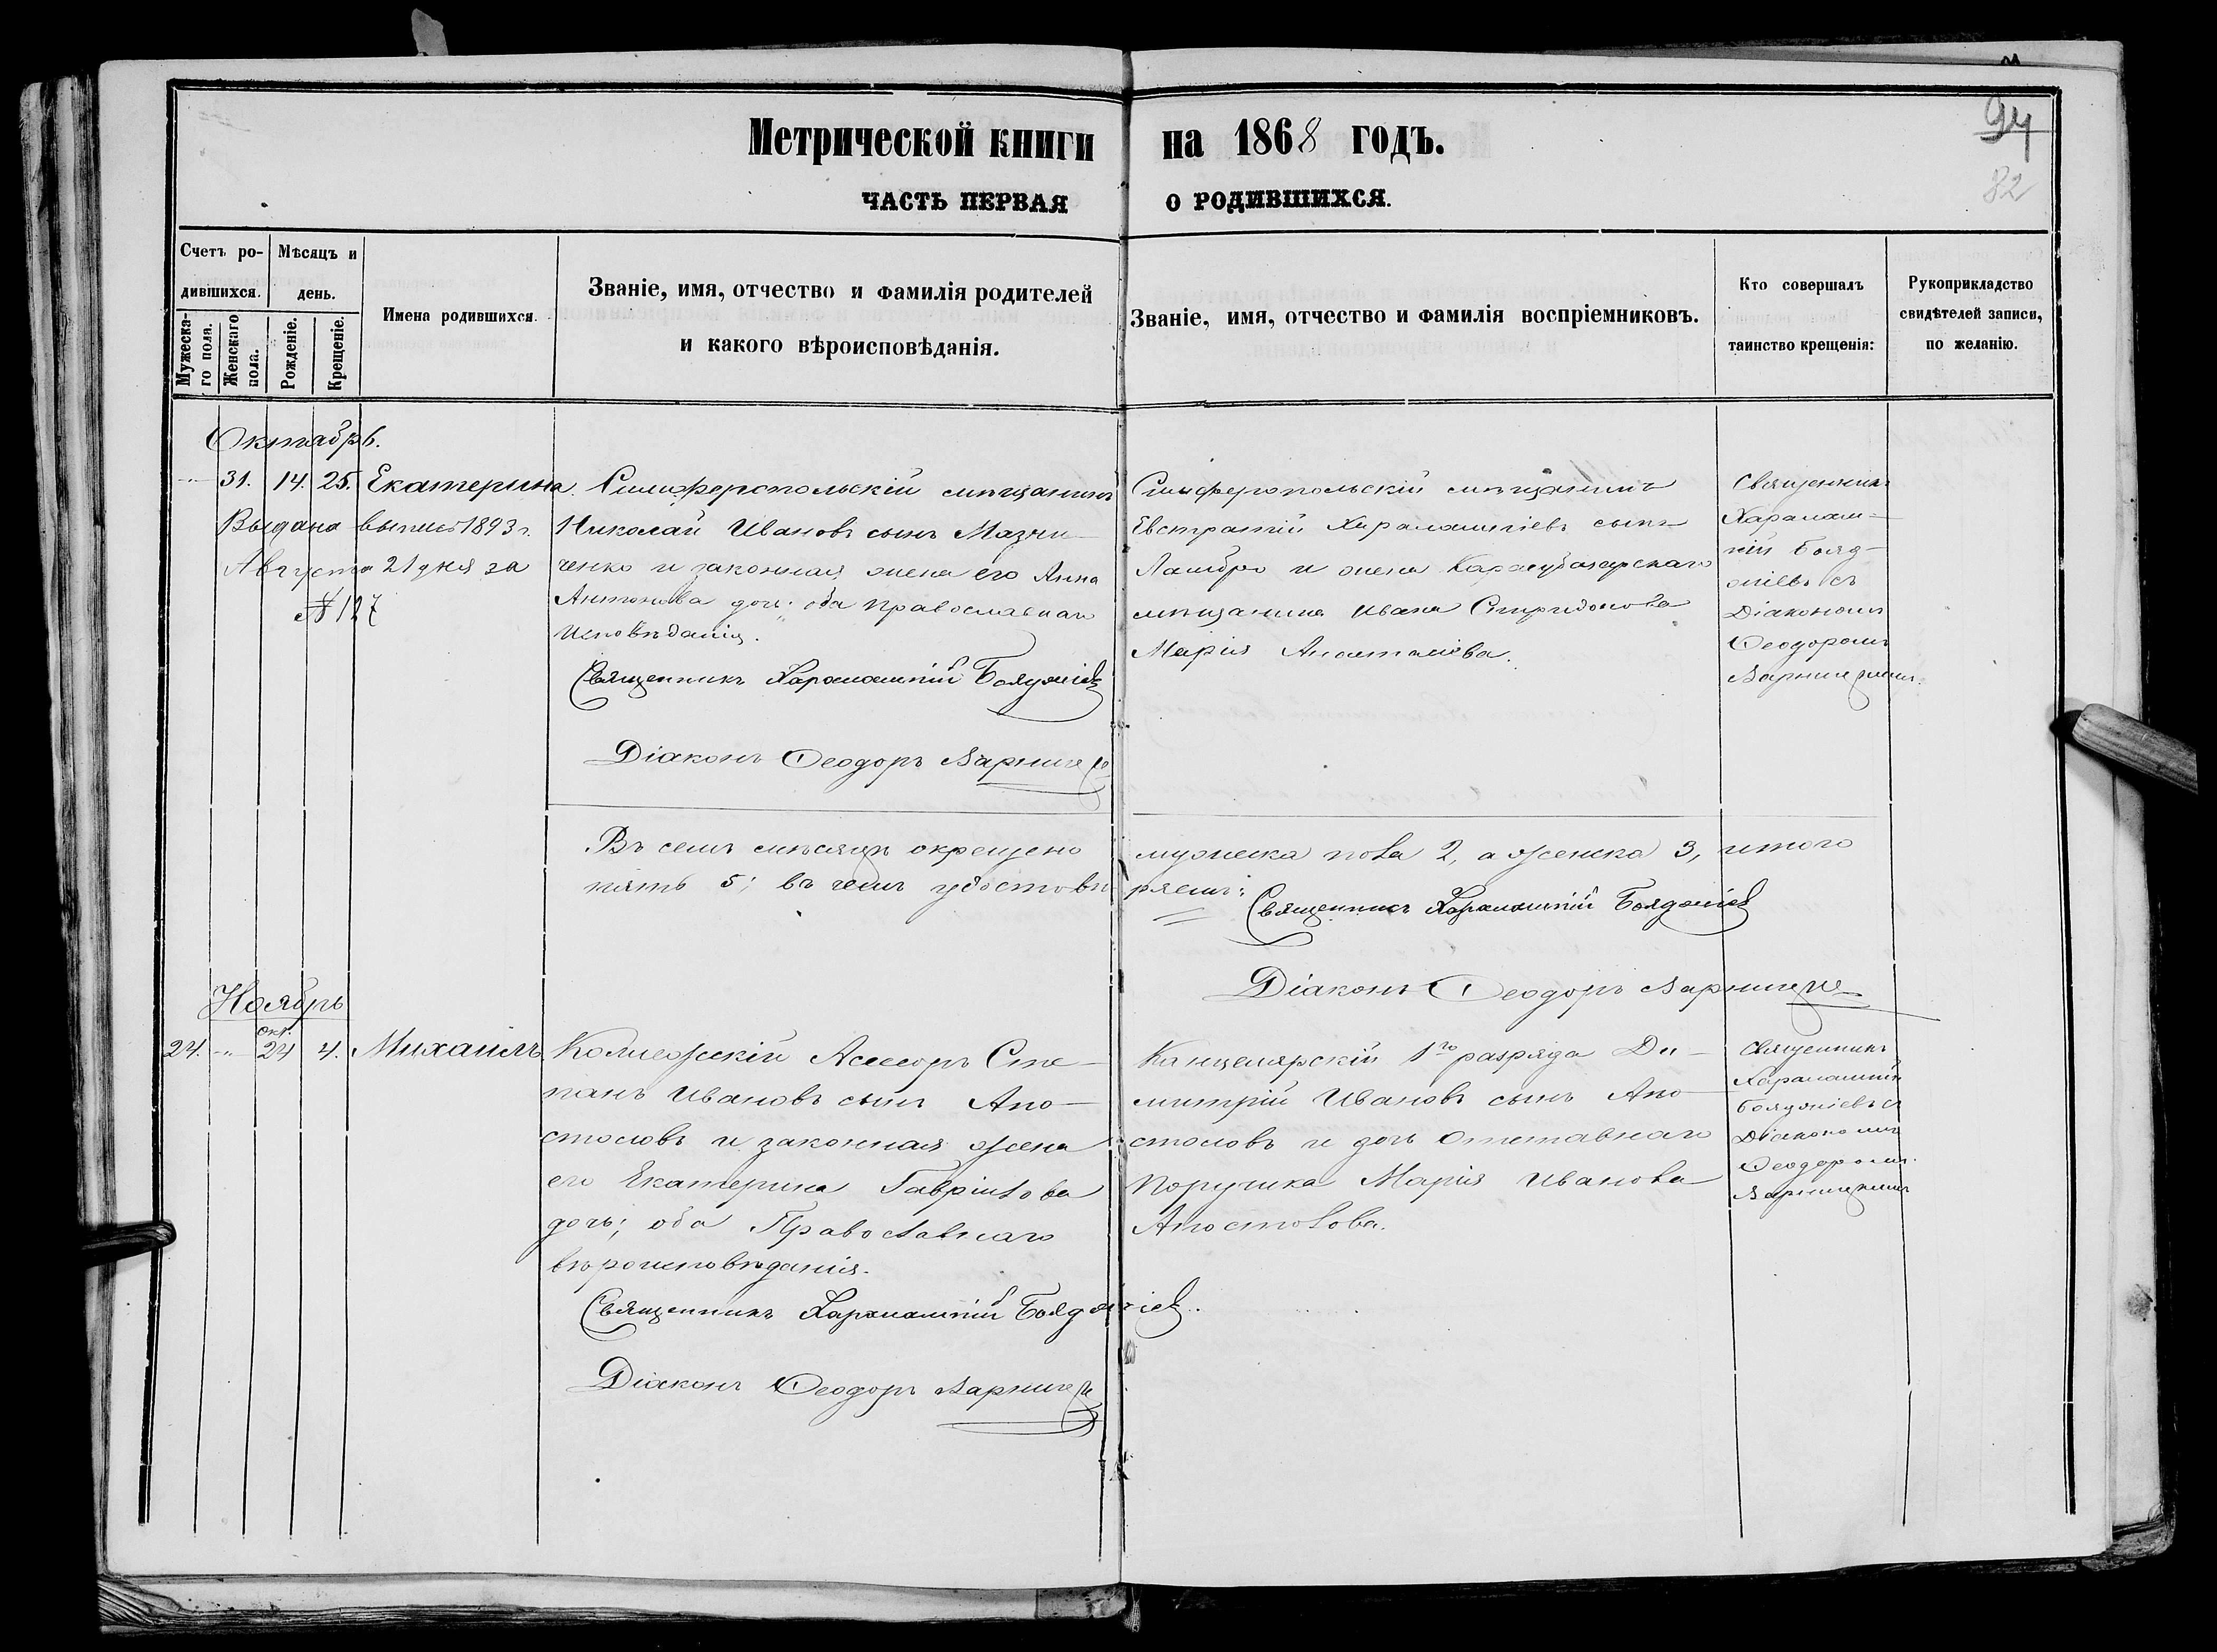 Метрической книги на 1868 годъ.
94
82
ЧАСТЬ ПЕРВАЯ О РОДИВШИХСЯ.
Счетъ ро-
дившихся.
Мужеска-
го пола.
Женскаго
пола.
Мѣсяцъ и
день.
Рожденіе.
Крещеніе.
Имена родившихся.
Званіе, имя, отчество и фамилія родителей
и какого вѣроисповѣданія.
Званіе, имя, отчество и фамилія воспріемниковъ.
Кто совершалъ
таинство крещенія:
Рукоприкладство
свидѣтелей записи,
по желанію.
Октябрь.
31. 14. 25. Екатерина.
Выдана выпись 1893 г.
Августа 21 дня за
№ 127
Симферопольскій мѣщанинъ
Николай Ивановъ сынъ Мазни-
ченко и законная жена его Анна
Антонова дочь; оба православнаго
исповѣданія.
Священникъ Харалампій Бояджіевъ
Діаконъ Ѳеодоръ
Симферопольскій мѣщанинъ
Евстратій Харалампіевъ сынъ
Ламбро и жена Карасубазарскаго
мѣщанина Ивана Спиридонова
Марія Анастасіева.
Священникъ
Харалам-
пій Бояд-
жіевъ съ
Діакономъ
Ѳеодоромъ
Въ семъ мѣсяцѣ окрещено мужеска пола 2, а женска 3, итого
пять 5; въ чемъ удостовѣряемъ:
Священникъ Харалампій Бояджіевъ
Діаконъ Ѳеодоръ
Ноябрь
окт.
24. 24 4. Михаилъ
Коллежскій Ассесоръ Сте-
панъ Ивановъ сынъ Апо-
столовъ и законная жена
его Екатерина Гавріилова
дочь; оба Православнаго
вѣроисповѣданія.
Священникъ Харалампій Бояджіевъ.
Діаконъ Ѳеодоръ
Канцелярскій 1го разряда Ди-
митрій Ивановъ сынъ Апо-
столовъ и дочь Отставнаго
Поручика Марія Иванова
Апостолова.
Священникъ
Харалампій
Бояджіевъ съ
Діакономъ
Ѳеодоромъ